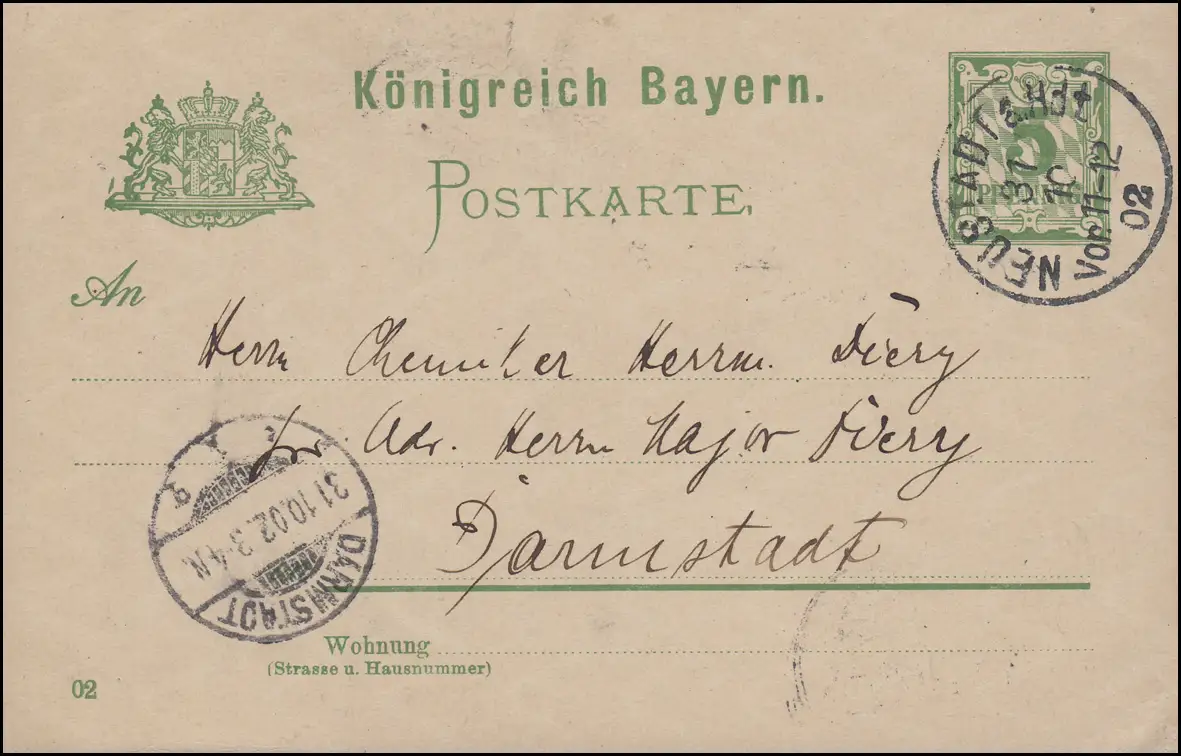 Königreich Bayern.
POSTKARTE.
5
PFENNIG
NEUSTADT a. Hdt
31
10
Vor. 11-12
02
An
Herrn Chemiker Herrm. Diery
pr Adr. Herrn Major Diery
Darmstadt
DARMSTADT
31.10.02. 3-4 N.
Wohnung
(Strasse u. Hausnummer)
02